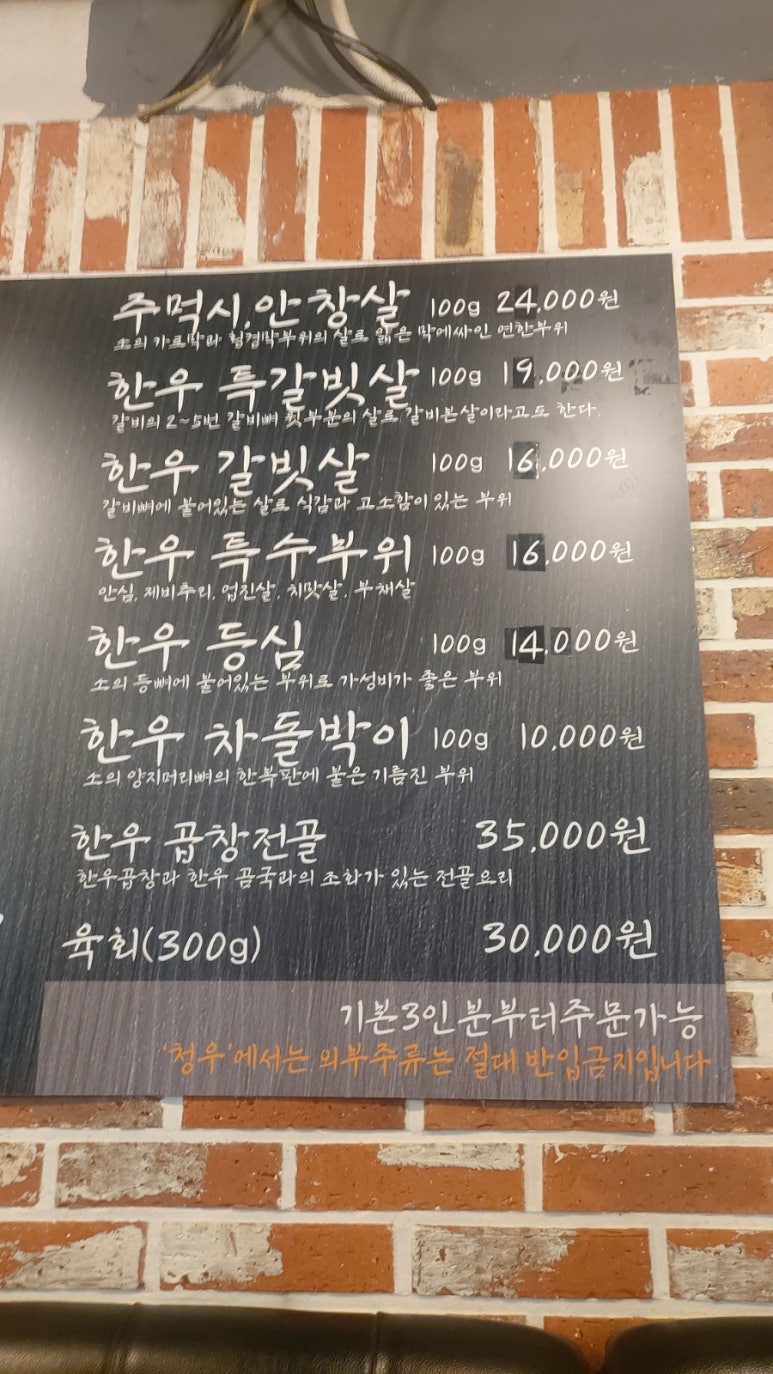 주먹시.안창살 100g 24,000원
소의 가로막과 횡경막부위의 살로 얇은 막에싸인 연한부위
한우 특갈빗살 100g 19,000원
갈비의 2~5번 갈비뼈 윗부분의 살로 갈비본살이라고도 한다.
한우 갈빗살 100g 16,000원
갈비뼈에 붙어있는 살로 식감과 고소함이 있는 부위
한우 특수부위 100g 16,000원
안심, 제비추리, 업진살, 치맛살, 부채살
한우 등심 100g 14,000원
소의 등뼈에 붙어있는 부위로 가성비가 좋은 부위
한우 차돌박이 100g 10,000원
소의 양지머리뼈의 한복판에 붙은 기름진 부위
한우 곱창전골 35,000원
한우곱창과 한우 곰국과의 조화가 있는 전골요리
육회(300g) 30,000원
기본3인분부터주문가능
'청우'에서는 외부주류는 절대 반입금지입니다.